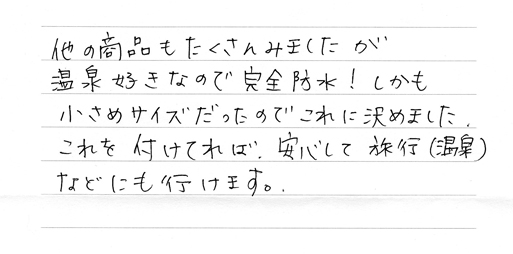 他の商品もたくさんみましたが
温泉好きなので完全防水！しかも
小さめサイズだったのでこれに決めました.
これを付けてれば、安心して旅行(温泉)
などにも行けます。